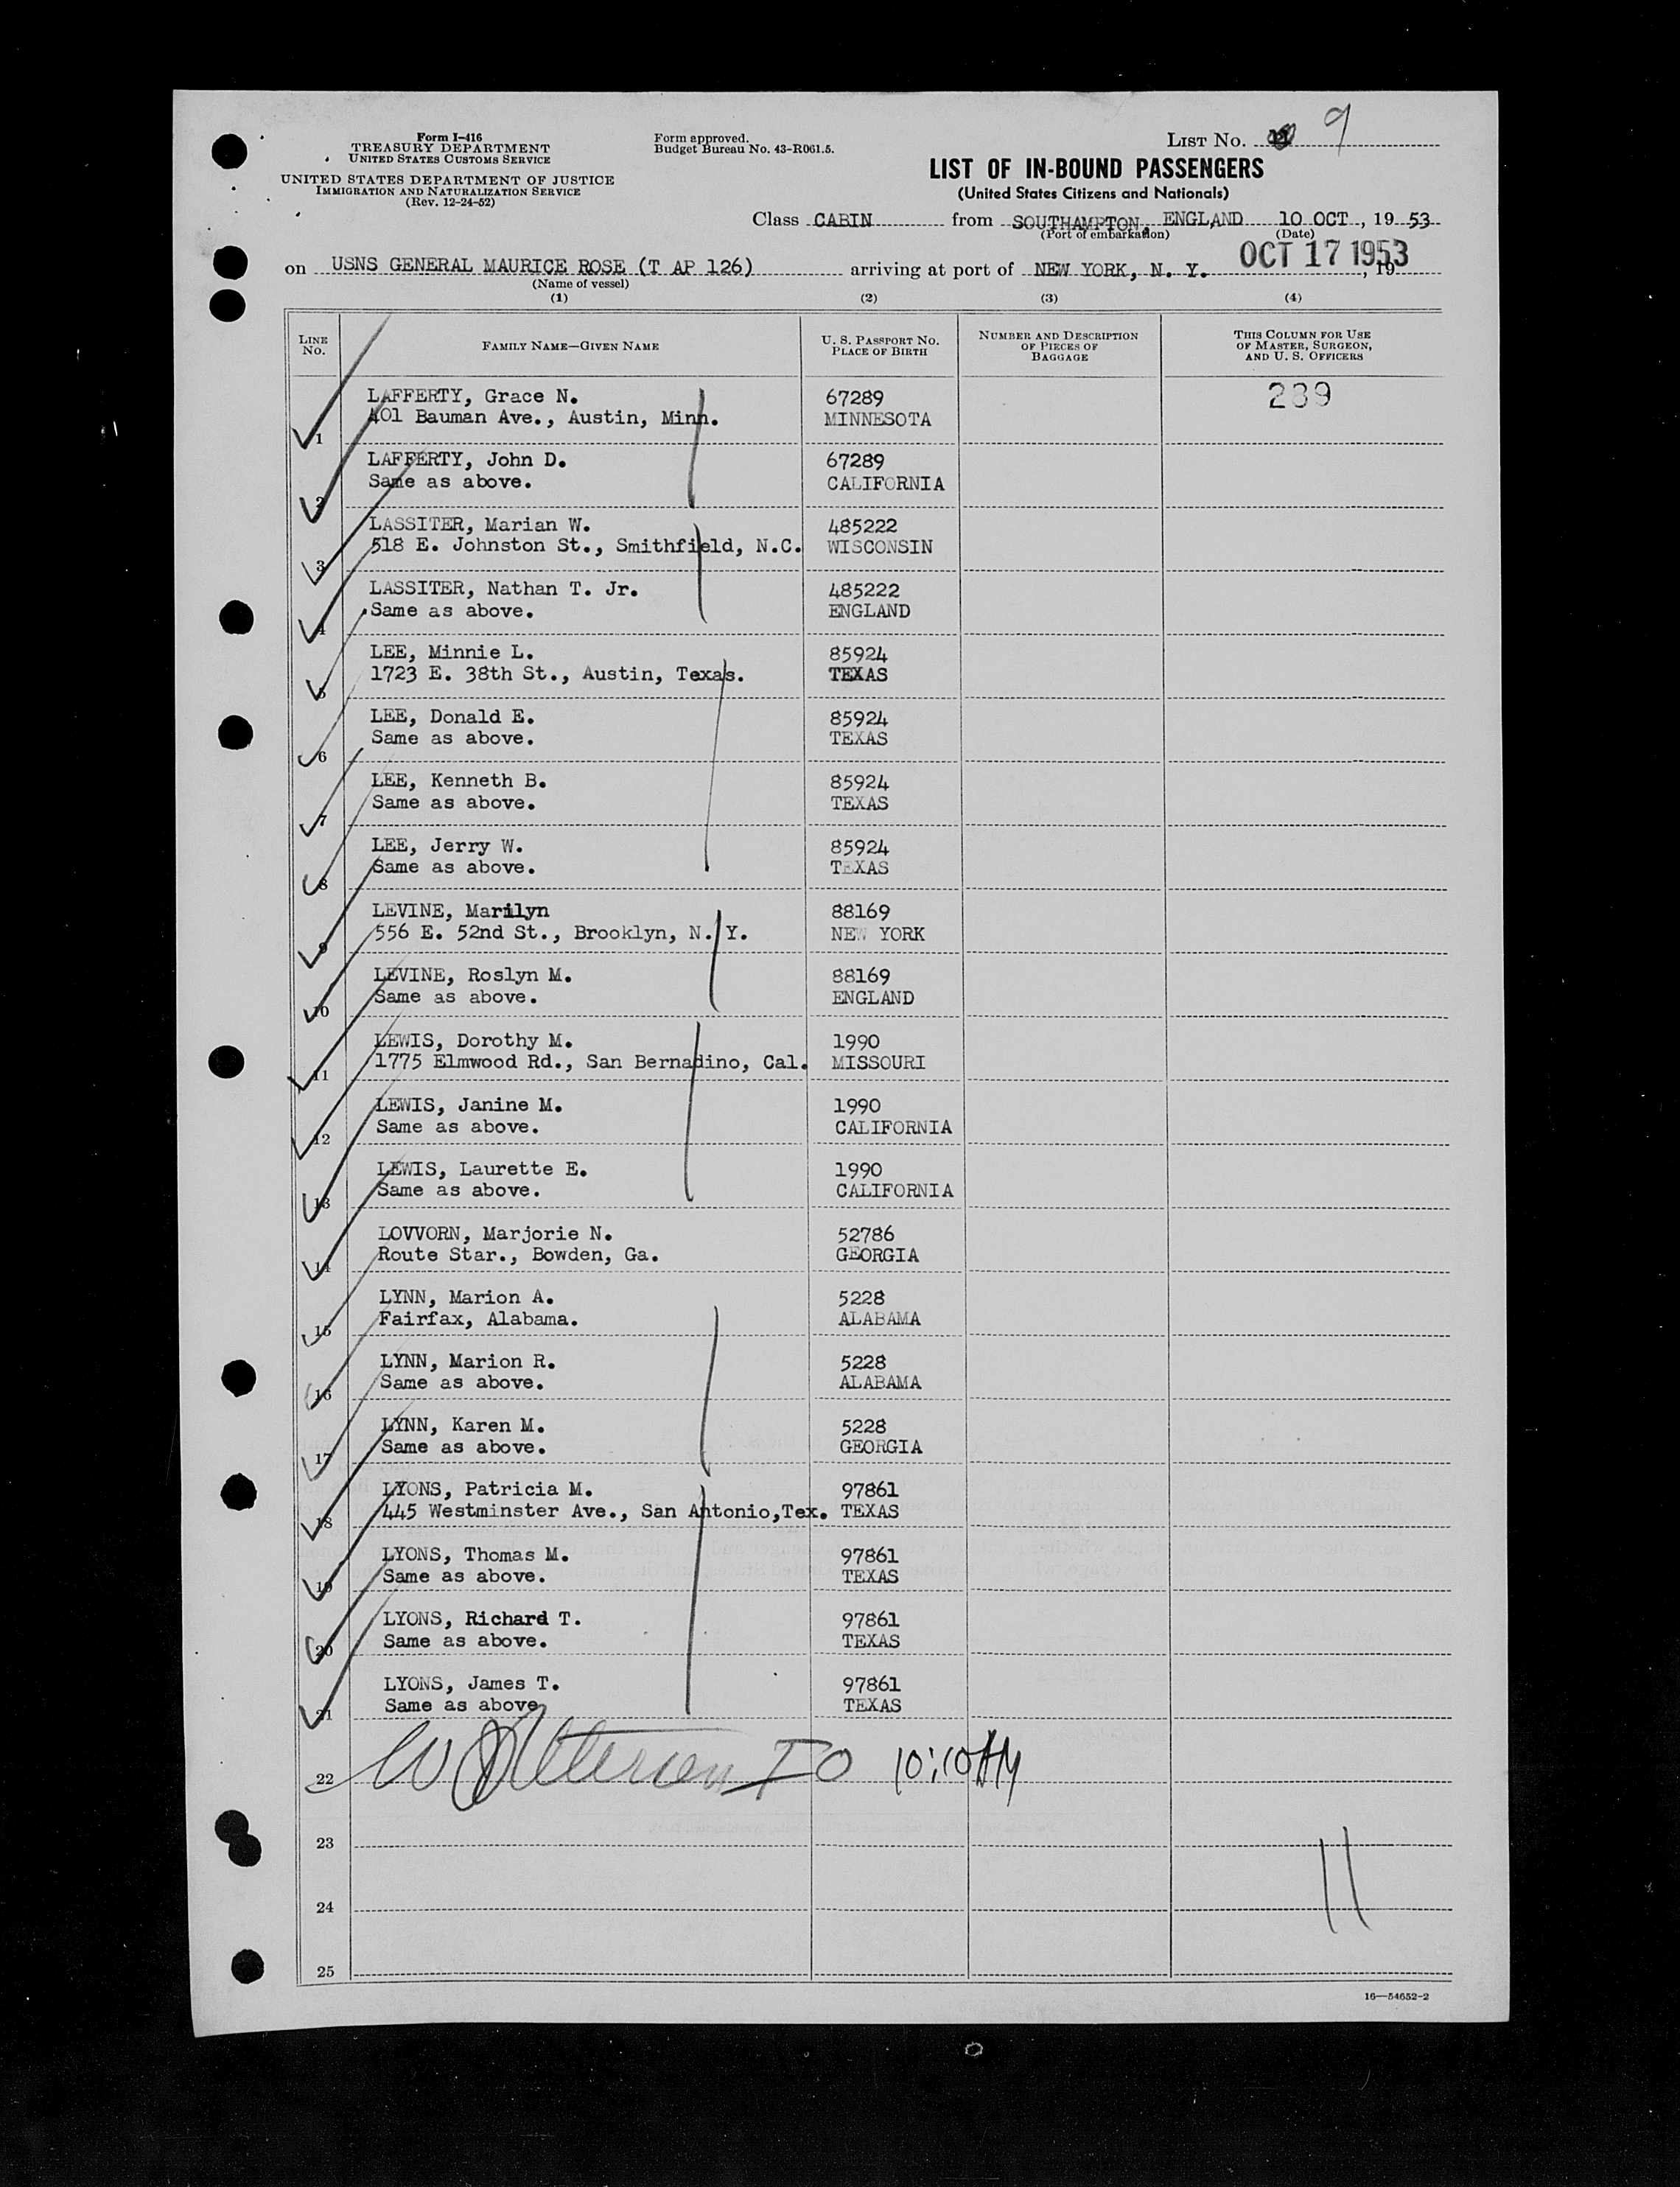 Form I-416
TREASURY DEPARTMENT
UNITED STATES CUSTOMS SERVICE
UNITED STATES DEPARTMENT OF JUSTICE
IMMIGRATION AND NATURALIZATION SERVICE
(Rev. 12-24-52)
Form approved.
Budget Bureau No. 43-R061.5.
LIST No. 9
LIST OF IN-BOUND PASSENGERS
(United States Citizens and Nationals)
Class CABIN from SOUTHAMPTON, ENGLAND 10 OCT, 19 53
(Port of embarkation) (Date)
on USNS GENERAL MAURICE ROSE (T AP 126) arriving at port of NEW YORK, N. Y. OCT 17 1953, 19
(Name of vessel)
(1) (2) (3) (4)
LINE No. FAMILY NAME—GIVEN NAME U. S. PASSPORT No. PLACE OF BIRTH NUMBER AND DESCRIPTION OF PIECES OF BAGGAGE THIS COLUMN FOR USE OF MASTER, SURGEON, AND U. S. OFFICERS
LAFFERTY, Grace N. 67289 239
1 401 Bauman Ave., Austin, Minn. MINNESOTA
LAFFERTY, John D. 67289
2 Same as above. CALIFORNIA
LASSITER, Marian W. 485222
3 518 E. Johnston St., Smithfield, N.C. WISCONSIN
LASSITER, Nathan T. Jr. 485222
4 Same as above. ENGLAND
LEE, Minnie L. 85924
5 1723 E. 38th St., Austin, Texas. TEXAS
LEE, Donald E. 85924
6 Same as above. TEXAS
LEE, Kenneth B. 85924
7 Same as above. TEXAS
LEE, Jerry W. 85924
8 Same as above. TEXAS
LEVINE, Marilyn 88169
9 556 E. 52nd St., Brooklyn, N. Y. NEW YORK
LEVINE, Roslyn M. 88169
10 Same as above. ENGLAND
LEWIS, Dorothy M. 1990
11 1775 Elmwood Rd., San Bernadino, Cal. MISSOURI
LEWIS, Janine M. 1990
12 Same as above. CALIFORNIA
LEWIS, Laurette E. 1990
13 Same as above. CALIFORNIA
LOVVORN, Marjorie N. 52786
14 Route Star., Bowden, Ga. GEORGIA
LYNN, Marion A. 5228
15 Fairfax, Alabama. ALABAMA
LYNN, Marion R. 5228
16 Same as above. ALABAMA
LYNN, Karen M. 5228
17 Same as above. GEORGIA
LYONS, Patricia M. 97861
18 445 Westminster Ave., San Antonio,Tex. TEXAS
LYONS, Thomas M. 97861
19 Same as above. TEXAS
LYONS, Richard T. 97861
20 Same as above. TEXAS
LYONS, James T. 97861
21 Same as above. TEXAS
22 IO 10:10 AM
23
24 11
25
16—54652-2